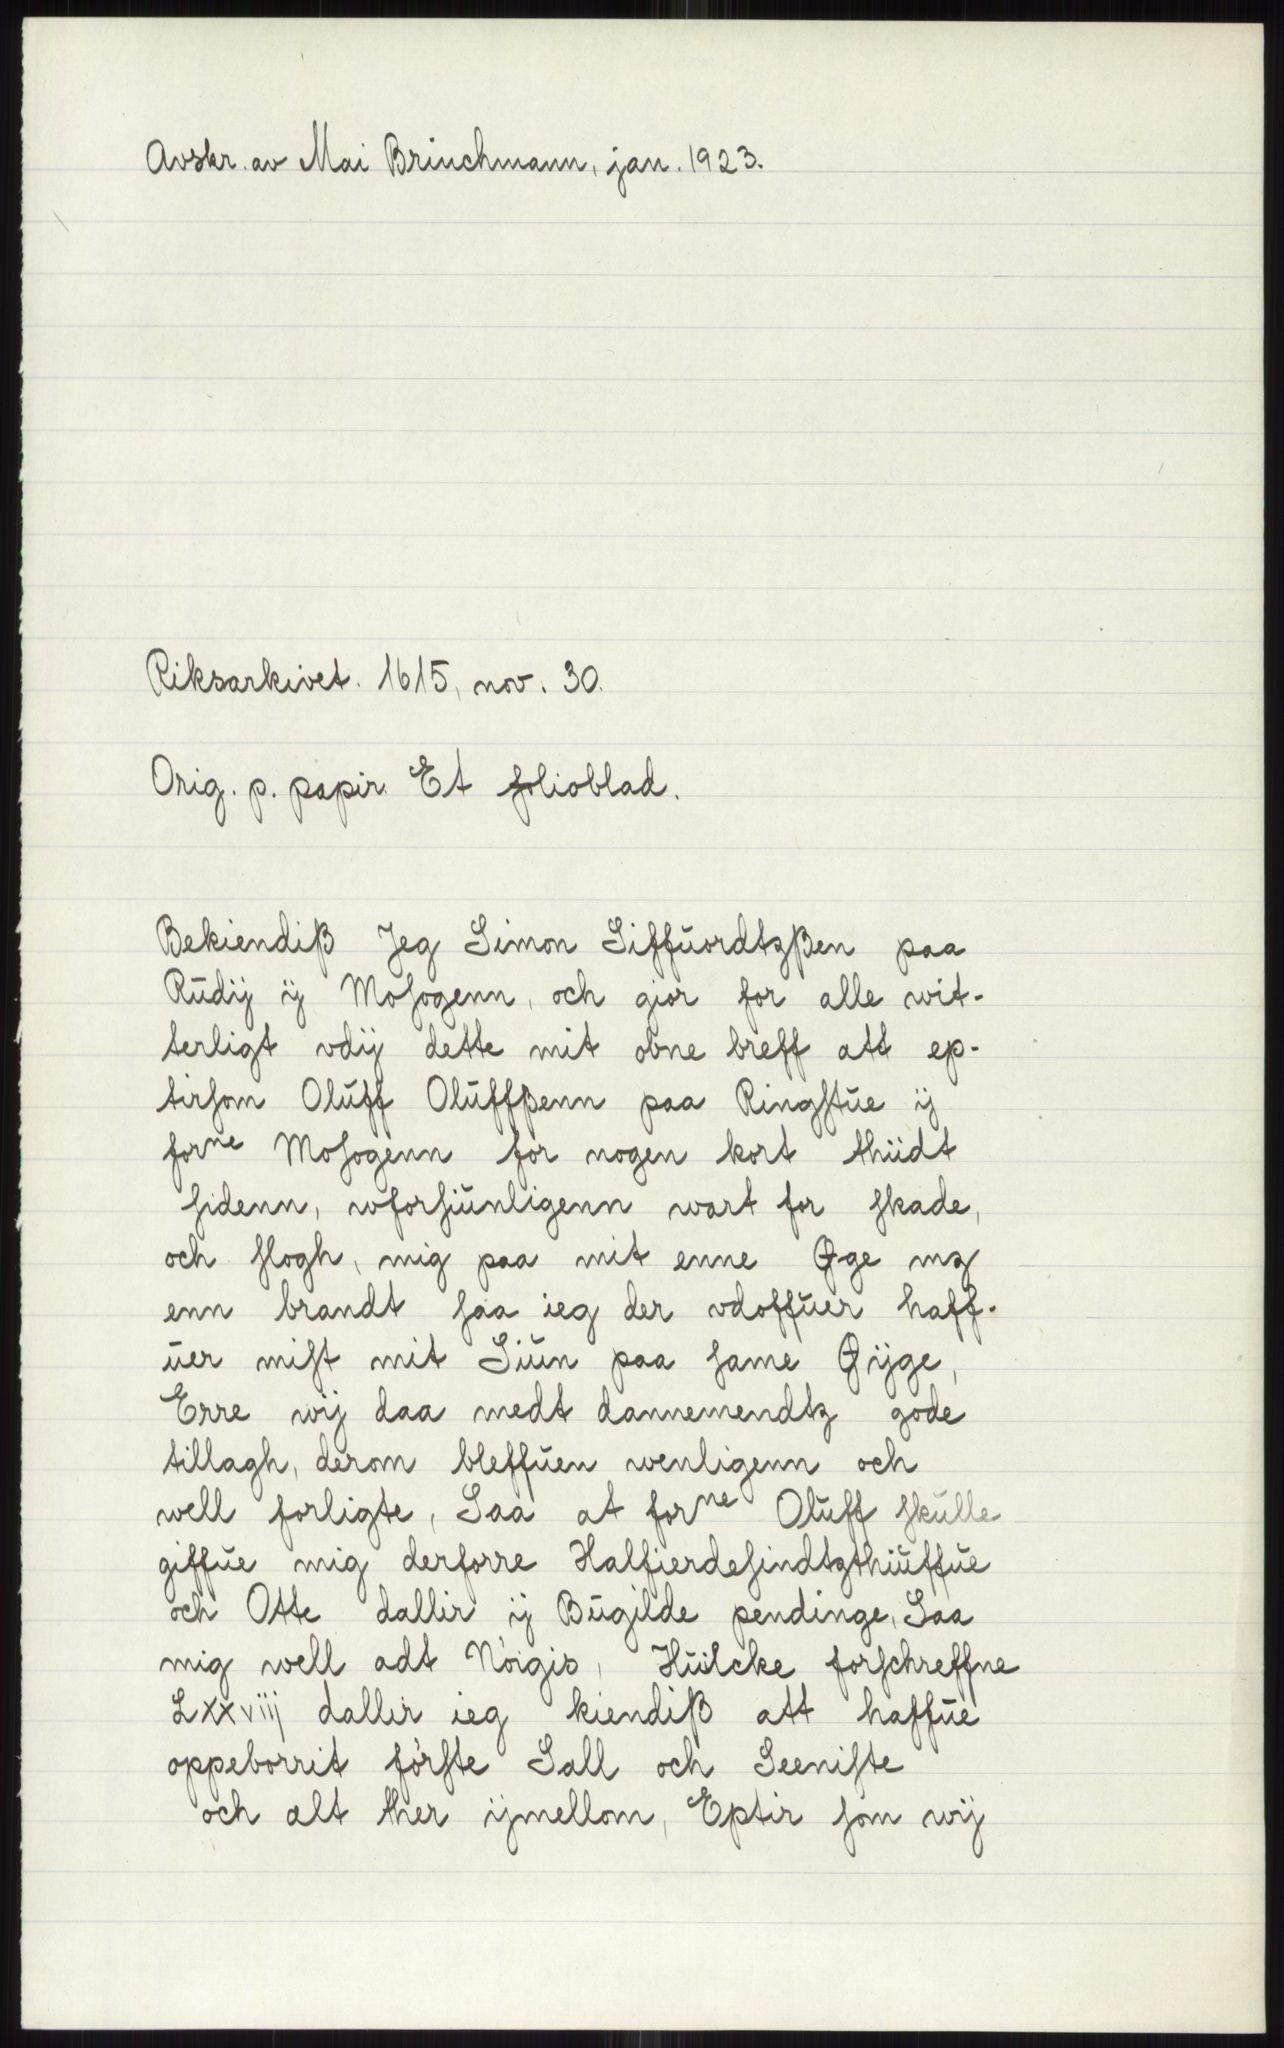 Avskr. av Mai Brinchmann, jan. 1923.
Riksarkivet. 1615, nov. 30.
Orig. p. papir. Et folioblad.
Bekiendiß Jeg Simon Siffuordtzßen paa
Rudij ij Mosogenn, och giör for alle wit-
terligt vdij dette mit obne breff att ep-
tirsom Oluff Oluffßenn paa Ringstue ij
forne Mosogenn for nogen kort thiidt
sidenn, wforsiunligenn wart for skade,
och slogh, mig paa mit enne Øge mz
enn brandt saa ieg der vdoffuer haff-
uer mist mit Siun paa same Øijge,
Erre wij daa medt dannemendtz gode
tillagh, derom bleffuen wenligenn och
well forligte, Saa at forne Oluff skulle
giffue mig derforre Halfierdesindtzthiuffue
och Otte dallir ij Bugilde pendinge, Saa
mig well adt Nöigis, Huilcke forschreffne
Lxxviij dallir ieg kiendiß att haffue
oppeborrit förste Sall och Seeniste
och alt ther ijmellom, Eptir som wij